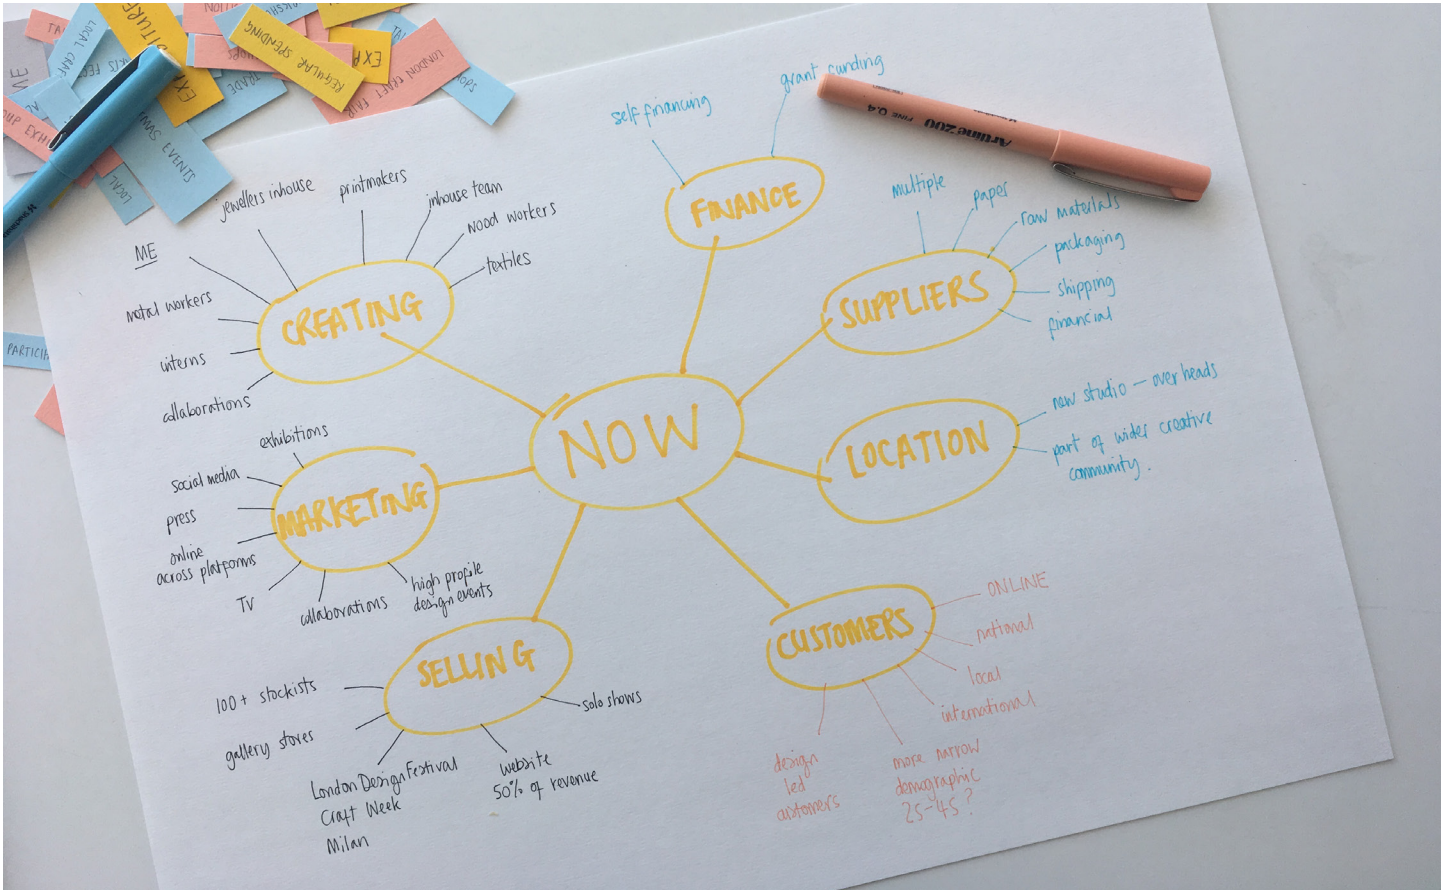 REGULAR SPENDING
LONDON CRAFT FAIR
TRADE
EVENTS
LOCAL
Artline 200
FINE 0.4
NOW
CREATING
ME
jewellers inhouse
printmakers
inhouse team
wood workers
textiles
metal workers
interns
collaborations
FINANCE
self financing
grant funding
SUPPLIERS
multiple
paper
raw materials
packaging
shipping
financial
LOCATION
new studio – overheads
part of wider creative
community.
MARKETING
exhibitions
social media
press
online
across platforms
TV
collaborations
high profile
design events
SELLING
100+ stockists
gallery stores
London Design Festival
Craft Week
Milan
website
50% of revenue
solo shows
CUSTOMERS
ONLINE
national
local
international
more narrow
demographic
25-45?
design
led
customers